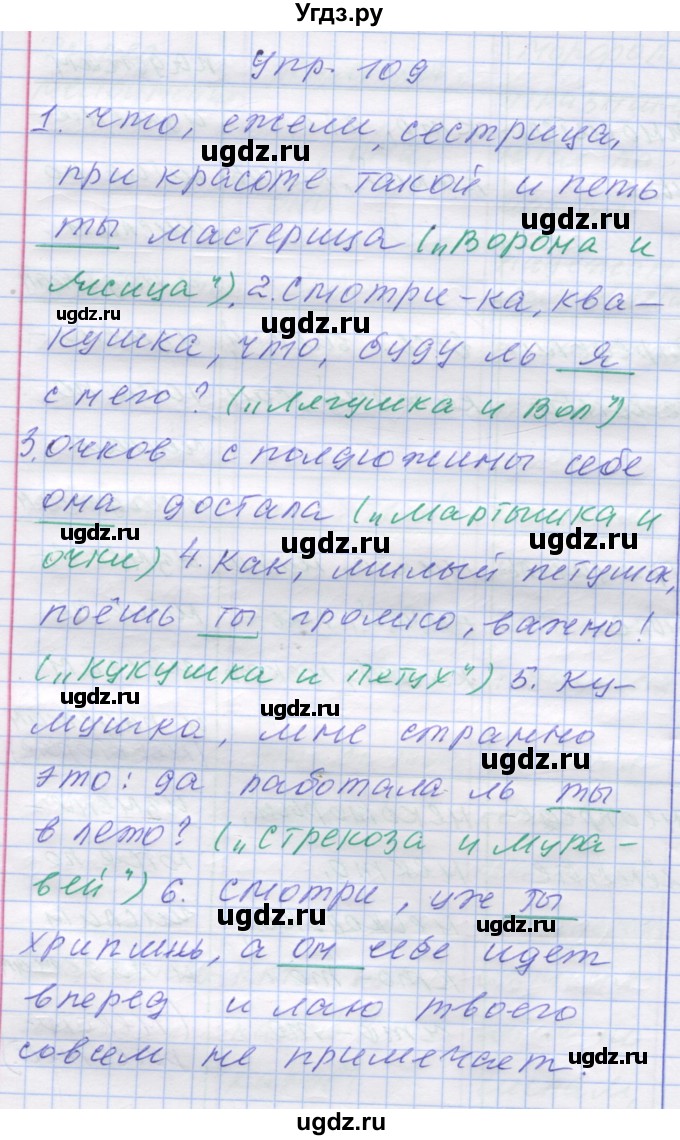 Угдз.ру
Упр. 109
1. Что, ежели, сестрица,
ugdz.ru
при красоте такой и петь
ugdz.ru
ты мастерица („Ворона и
ugdz.ru
Лисица"). 2. Смотри-ка, ква-
ugdz.ru
ugdz.ru
кушка, что, буду ль я
с него? („Лягушка и Вол")
ugdz.ru
3. Очков с полдюжины себе
она достала („Мартышка и
ugdz.ru
ugdz.ru
ugdz.ru
очки) 4. Как, милый петушок,
поёшь ты громко, важно!
ugdz.ru
(„Кукушка и Петух") 5. Ку-
ugdz.ru
ugdz.ru
мушка, мне странно
это: да работала ль ты
ugdz.ru
в лето? („Стрекоза и Мура-
ugdz.ru
вей") 6. Смотри, уж ты
ugdz.ru
ugdz.ru
хрипишь, а он себе идет
вперед и лаю твоего
ugdz.ru
совсем не примечает.
ugdz.ru
ugdz.ru